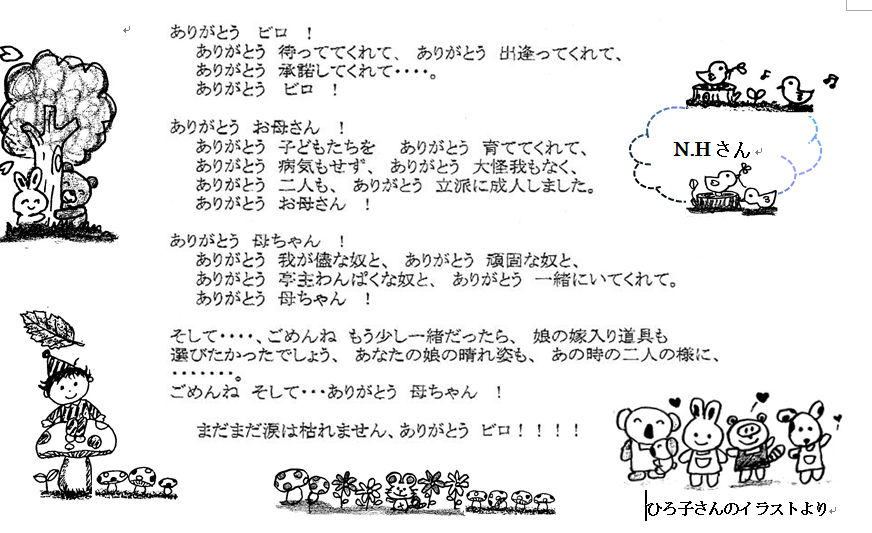 ありがとう ビロ !
ありがとう 待っててくれて、 ありがとう 出逢ってくれて、
ありがとう 承諾してくれて・・・・。
ありがとう ビロ !
ありがとう お母さん !
ありがとう 子どもたちを ありがとう 育ててくれて、
ありがとう 病気もせず、 ありがとう 大怪我もなく、
ありがとう 二人も、 ありがとう 立派に成人しました。
ありがとう お母さん !
ありがとう 母ちゃん !
ありがとう 我が儘な奴と、 ありがとう 頑固な奴と、
ありがとう 亭主わんぱくな奴と、 ありがとう 一緒にいてくれて。
ありがとう 母ちゃん !
そして・・・・、ごめんね もう少し一緒だったら、 娘の嫁入り道具も
選びたかったでしょう、 あなたの娘の晴れ姿も、 あの時の二人の様に、
・・・・・・・。
ごめんね そして・・・ありがとう 母ちゃん !
まだまだ涙は枯れません、ありがとう ビロ!!!!
N.Hさん
ひろ子さんのイラストより